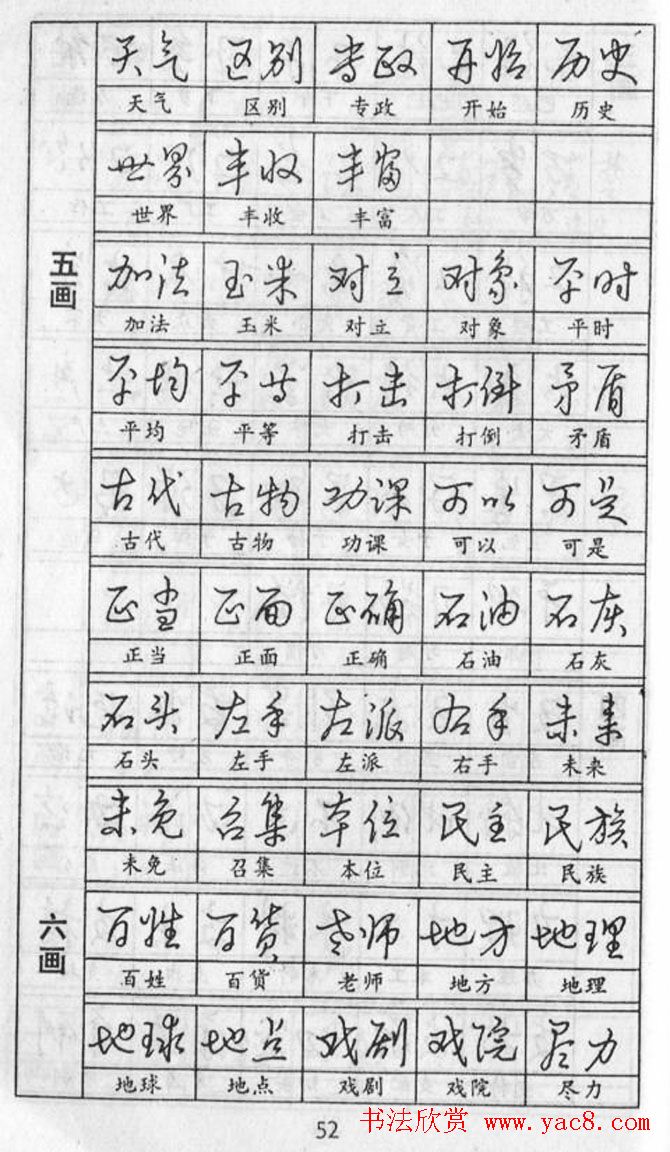 天气 区别 专政 开始 历史
天气 区别 专政 开始 历史
世界 丰收 丰富
世界 丰收 丰富
五画
加法 玉米 对立 对象 平时
加法 玉米 对立 对象 平时
平均 平等 打击 打倒 矛盾
平均 平等 打击 打倒 矛盾
古代 古物 功课 可以 可是
古代 古物 功课 可以 可是
正当 正面 正确 石油 石灰
正当 正面 正确 石油 石灰
石头 左手 左派 右手 未来
石头 左手 左派 右手 未来
未免 召集 本位 民主 民族
未免 召集 本位 民主 民族
六画
百姓 百货 老师 地方 地理
百姓 百货 老师 地方 地理
地球 地点 戏剧 戏院 尽力
地球 地点 戏剧 戏院 尽力
52
书法欣赏 www.yac8.com